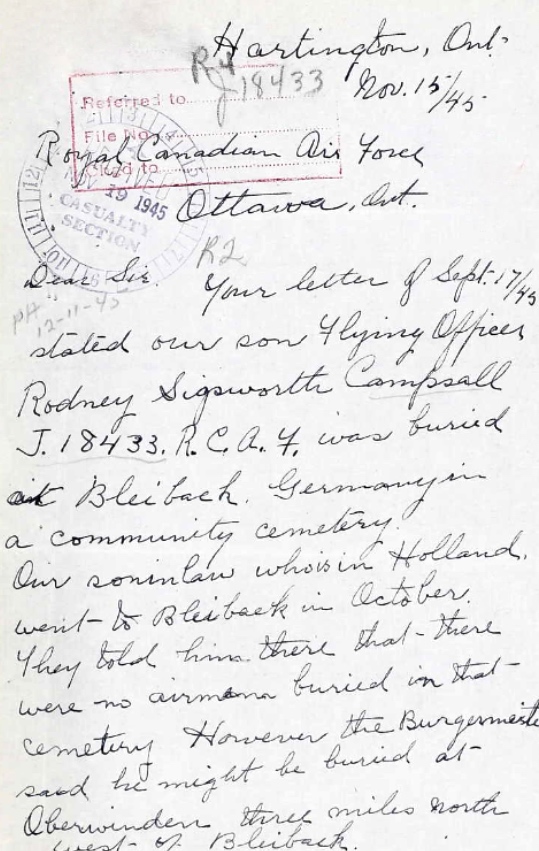 Hartington, Ont.
R4
J18433
Nov. 15/45
Referred to
File No.
Royal Canadian Air Force
NOV 19 1945
CASUALTY
SECTION
Ottawa, Ont.
R2
Dear Sir. Your letter of Sept. 17/45
12-11-45
stated our son Flying Officer
Rodney Sigsworth Campsall
J. 18433. R.C.A.F. was buried
at Bleiback. Germany in
a community cemetery.
Our soninlaw who is in Holland.
went to Bleiback in October.
They told him there that there
were no airmen buried in that
cemetery However the Burgermeiste
said he might be buried at
Oberwinden three miles north
west of Bleiback.